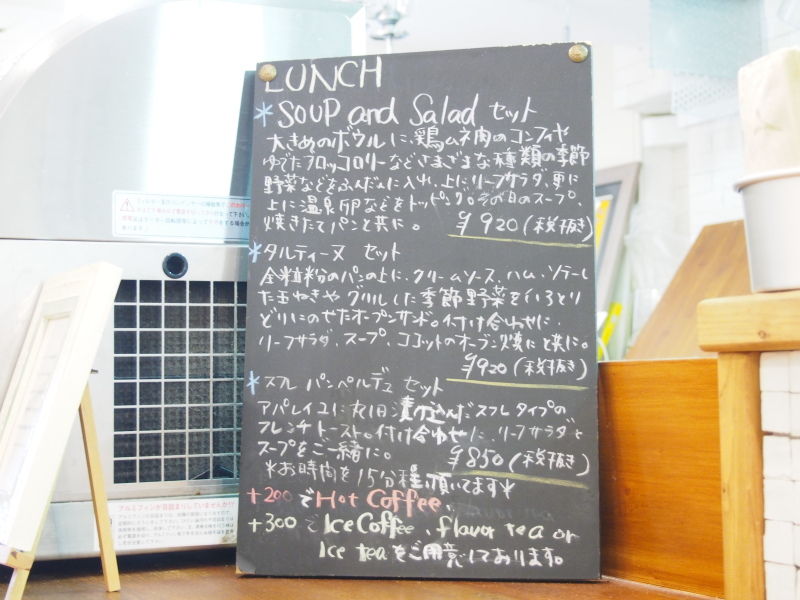 LUNCH
* SOUP and Salad セット
大きめのボウルに、鶏ムネ肉のコンフィや
ゆでたブロッコロリーなどさまざまな種類の季節
野菜などをふんだんに入れ、上にリーフサラダ、更に
上に温泉卵などをトッピング。その日のスープ、
焼きたてパンと共に。 ¥920(税抜き)
* タルティーヌ セット
全粒粉のパンの上に、クリームソース、ハム、ソテーし
た玉ねぎや グリルした季節野菜をいろとり
どりにのせたオープンサンド。付け合わせに、
リーフサラダ、スープ、ココットのオーブン焼きと共に。
¥920(税抜き)
* スフレ パンペルデュ セット
アパレイユに 漬け込んだ スフレタイプの
フレンチトースト。付け合わせに、リーフサラダと
スープをご一緒に。 ¥850(税抜き)
*お時間を15分程頂いてます*
+200で Hot Coffee、
+300で Ice Coffee、flavor tea or
Ice tea をご用意しております。